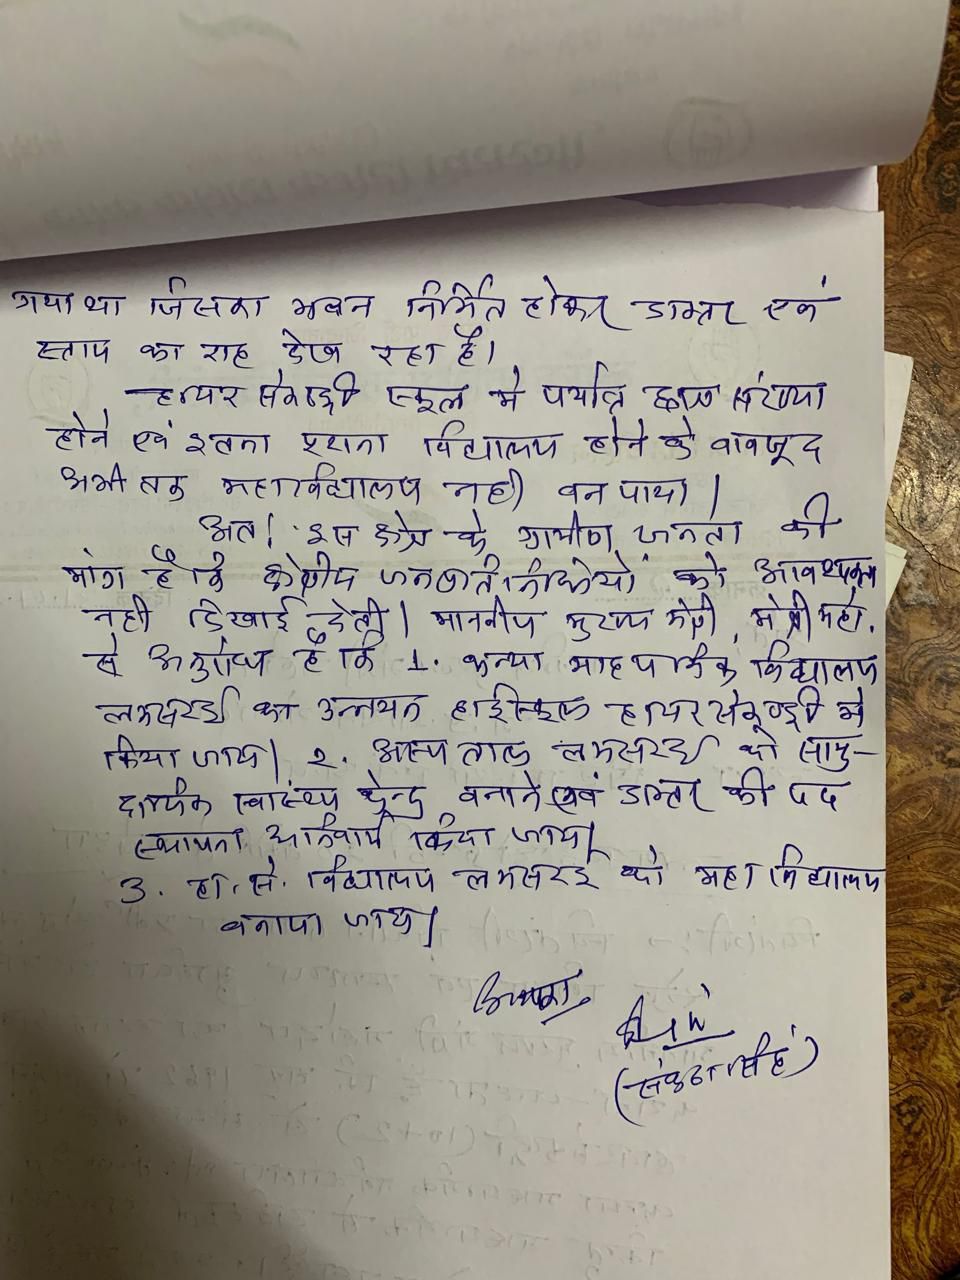 गया था जिसका भवन निर्मित होकर डाक्तर एवं
स्ताप का राह देख रहा है।
हायर सेकण्ड्री स्कूल मे पर्याप्त छात्र संख्या
होने एवं इतना पुराना विद्यालय होने के वावजूद
अभी तक महाविद्यालय नही वन पाया।
अतः इस क्षेत्र के ग्रामीण जनता की
मांग है कि क्षेत्रीय जनप्रतिनिधियो को आवश्यकता
नही दिखाई देती। माननीय मुख्य मंत्री, मंत्री महो.
से अनुरोध है कि 1. कन्या माध्यमिक विद्यालय
लमसरई का उन्नयन हाईस्कूल हायर सेकेण्ड्री मे
किया जाय। 2. अस्पताल लमसरई को सामु-
दायिक स्वास्थ्य केन्द्र वनाने एवं डाक्तर की पद
स्थापना अनिवार्य किया जाय।
3. हा. से. विद्यालय लमसरई को महाविद्यालय
वनाया जाय।
सिंह)